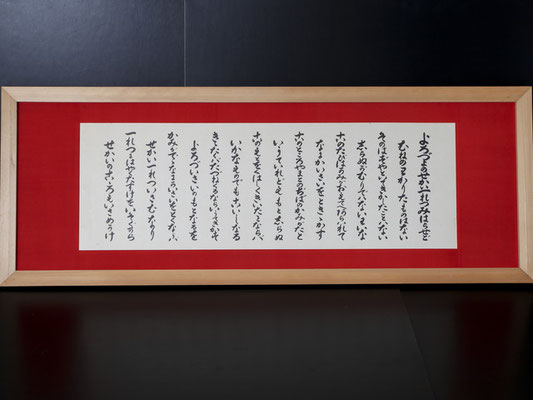 よろづよのせかい一れつみはらせど
むねのハかりたものはない
そのはずやといてきかしたことハない
しらぬがむりでハないわいな
このたびはかみがおもてへあらハれて
なにかいさいをときゝかす
このところやまとのぢばのかみがたと
いうていれども元しらぬ
このもとをくはしくきいたことならバ
いかなものでもこいしなる
きゝたくバたづねくるならいうてきかそ
よろづいさいのもとなるを
かみがでゝなにかいさいをとくならバ
せかい一れついさむなり
一れつにはやくたすけをいそぐから
せかいのこゝろもいさめかけ